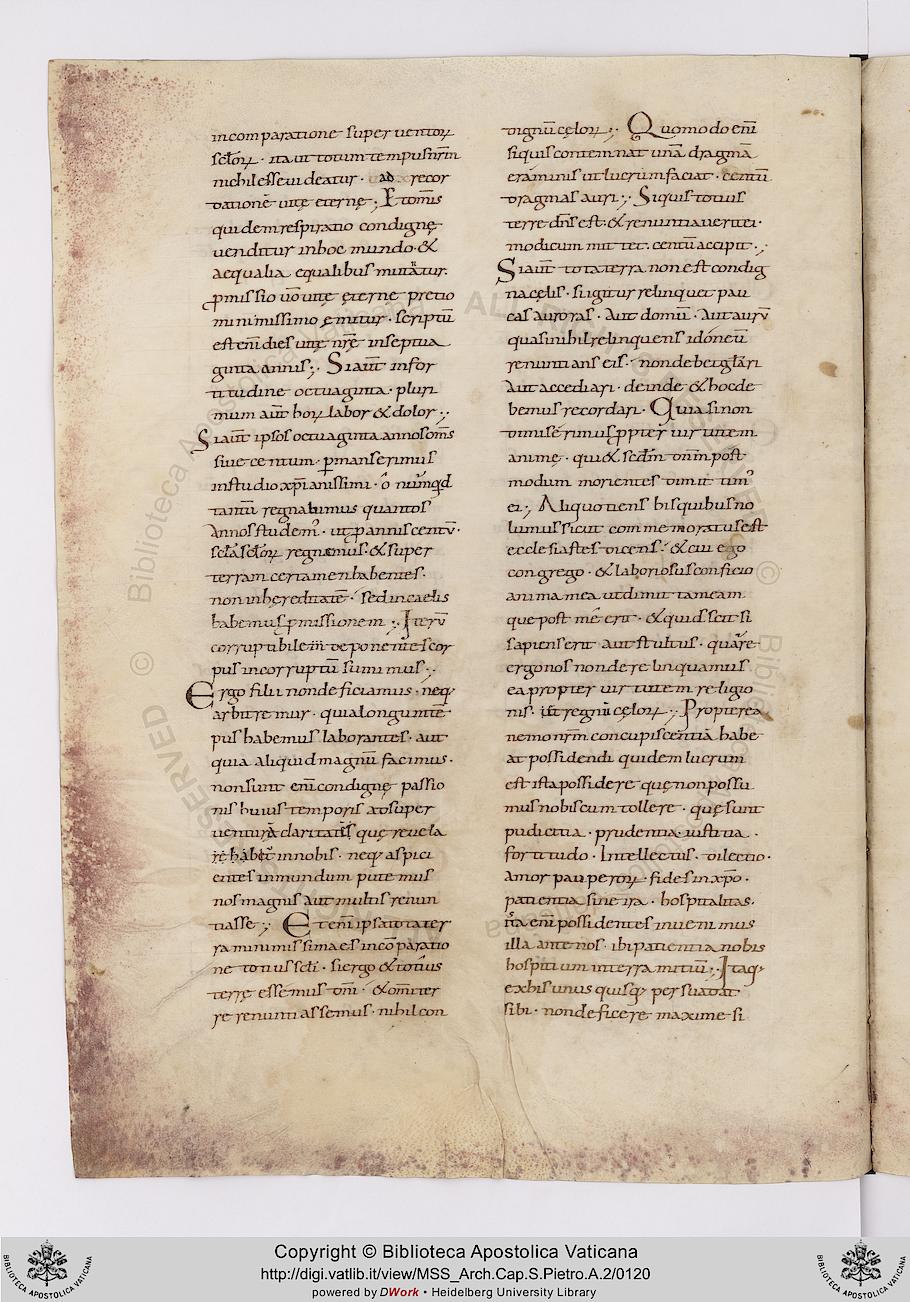 incomparatione superuentorꝝ
sclorꝝ. ita ut totum tempus nr̄m
nichil esse uideatur. ad recor
dationē uitę eternę; Et omīs
quidem respiratio condignę
uenditur in hoc mundo. &
aequalia equalibus mutātur.
ꝓmissio ū uitę ęterne pretio
minimissimo ęmitur. scriptū
est enī dies uitę nr̄ę in septua
ginta annis; Si aūt in for
titudine octuaginta. pluri
mum aūt horꝝ labor & dolor;
Si aūt ipsos octuaginta annos om̄s
siue centum. ꝑmanserimus
in studio xp̄ianissimi. ō nūmqd
tantū regnabimus quantos
annos studem᾿. ut ꝓ annis centū.
scla sclorꝝ regnemus. & super
terram certamen habentes.
non inhereditatē. sed in caelis
habemus ꝓmissionem; Iterū
corruptibile deponentes cor
pus incorruptū sumimus;
Ergo filii non deficiamus. neq;
arbitremur. quia longum tē
pus habemus laborantes. aut
quia aliquid magnū facimus.
non sunt enī condignę passio
nis huius temporis ad super
uenturā claritatē quę reuela
re habet in nobis. neq; aspici
entes in mundum putemus
nos magnis aut multis renun
tiasse; Et enī ipsa tota ter
ra minimissima es incōparatio
ne totius scli. si ergo & totius
terrę essemus dn̄i. & om̄i ter
re renuntiassemus. nihil con
dignū cęlorꝝ; Quomodo enī
si quis contemnat unā dragmā
eraminis ut lucrum faciat. centū
dragmas auri; Si quis totius
terre dn̄s est. & renuntiauerit ei.
modicum mittet. centū accipit;
Si aūt tota terra non est condig
na cęlis. si igitur relinquet pau
cas auroras. Aut domū. Aut aurū
quasi nihil relinquens idoneū
renuntians eis. non debet glari
Aut accediari. deinde & hoc de
bemus recordari. Quia si non
dimiserimus ꝓpter uirtutem
animę. qui & secdm om̄m post
modum morientes dimittim᾿
ei; Aliquotiens his quibus no
lumus sicut commemoratus est
ecclesiastes dicens. & cui ego
congrego. & laboriosus conficio
anima mea ut dimittam eam.
que post mē erit. & quis scit si
sapiens erit aut stultus. quāre
ergo nos non derelinquamus
ea propter uirtutem religio
nis. ut regnū cęlorꝝ; Propterea
nemo nr̄m concupiscentiā habe
at possidendi quidem lucrum
est ista possidere quę non possu
mus nobiscum tollere. quę sunt
pudicitia. prudentia. iustitia.
fortitudo. Intellectus. dilectio.
Amor pauperorꝝ. fides in xp̄o.
patientia sine ira. hospitalitas.
ista enī possidentes inuenimus
illa ante nos. ibi patientia nobis
hospitium in terra mitiū; Itaq;
ex his unus quisq; persuadat
sibi. non deficere maxime si
Copyright © Biblioteca Apostolica Vaticana
http://digi.vatlib.it/view/MSS_Arch.Cap.S.Pietro.A.2/0120
powered by DWork • Heidelberg University Library